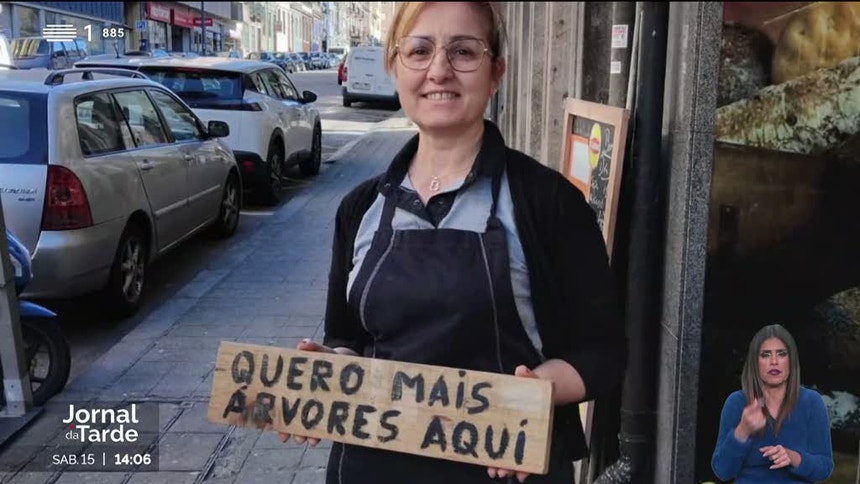 1 885
QUERO MAIS
ÁRVORES AQUÍ
Jornal
da Tarde
SÁB.15 | 14:06